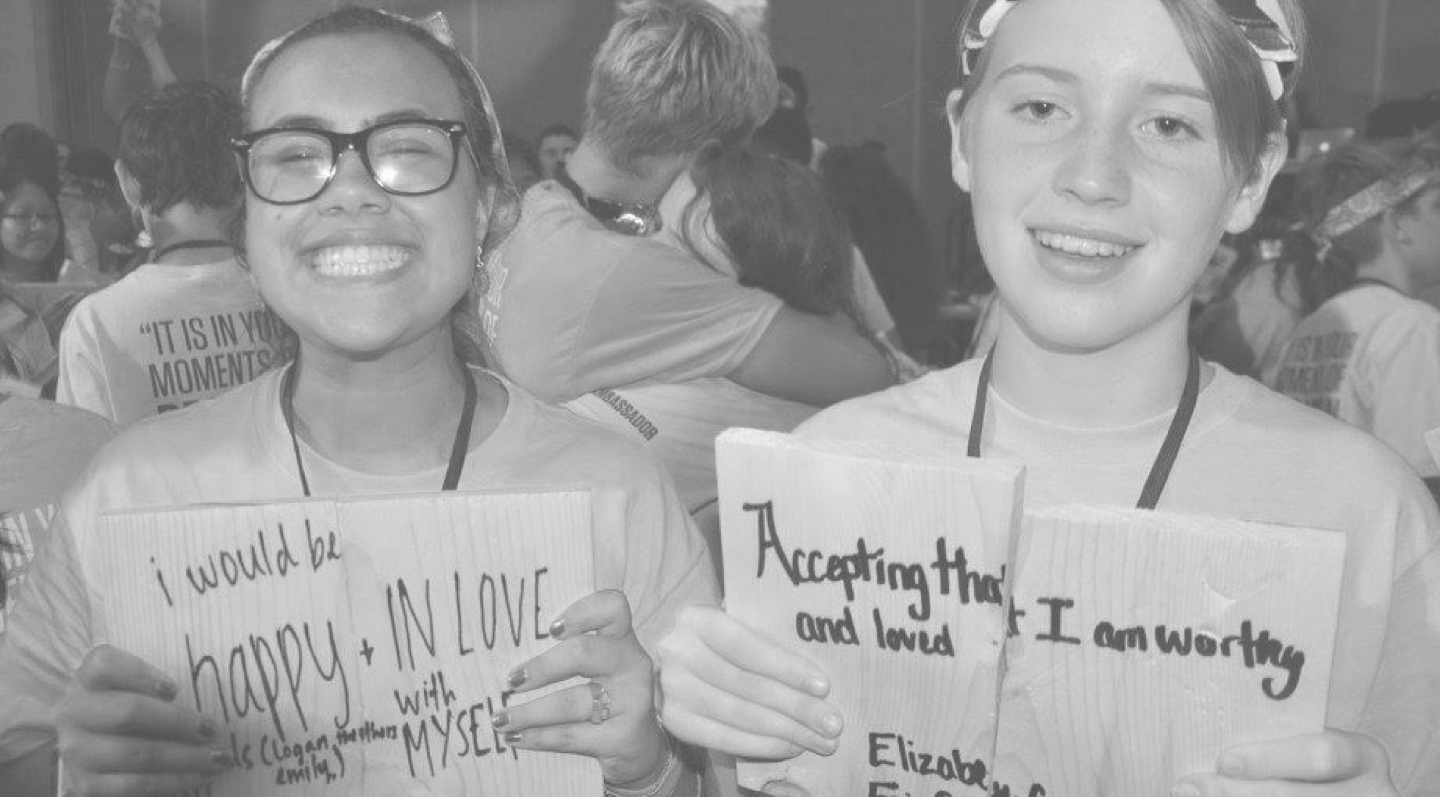 "IT IS IN YOU
MOMENTS
AMBASSADOR
i would be
happy + IN LOVE
with
MYSELF
(Logan, the others
emily,)
Accepting that I am worthy
and loved